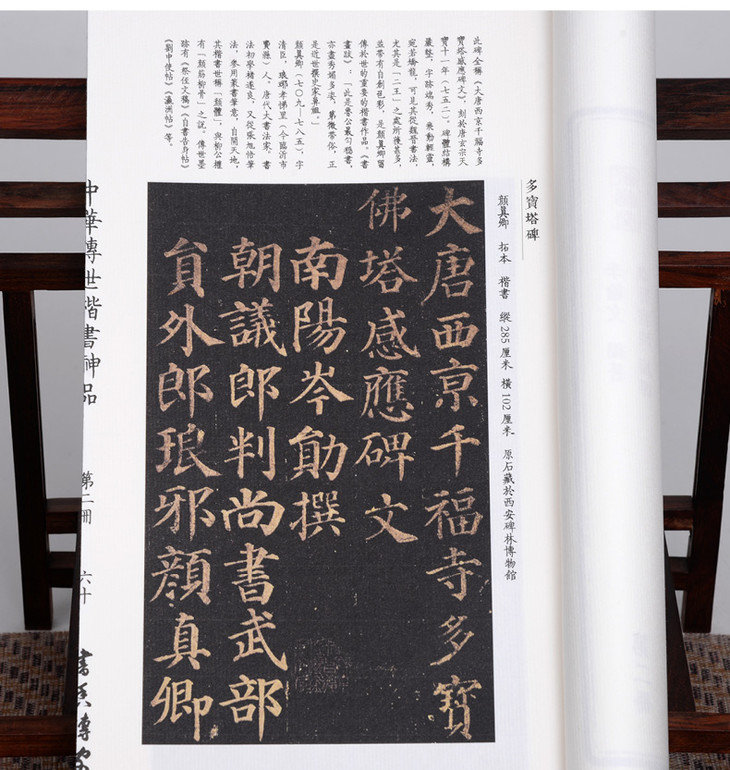 多寶塔碑
顏真卿 拓本 楷書 縱285厘米 橫102厘米 原石藏於西安碑林博物館
此碑全稱《大唐西京千福寺多
寶塔感應碑文》，刻於唐玄宗天
寶十一年（七五二）。碑體結構
嚴整，字跡端秀，飛動輕靈，
宛若矯龍，可見其從魏晉書法，
尤其是「二王」之處所得甚多，
並帶有自創色彩，是顏真卿留
傳於世的重要的楷書作品。《書
畫跋》：「此是魯公最勻穩書，
亦盡秀媚多姿，第微帶俗，正
是近世掾史家鼻祖。」
顏真卿（七〇九—七八五），字
清臣，琅琊孝悌里（今臨沂市
費縣）人。唐代大書法家。書
法初學褚遂良，又從張旭悟筆
法，參用篆書筆意，自開天地，
其楷書世稱「顏體」，與柳公權
有「顏筋柳骨」之説。傳世墨
跡有《祭侄文稿》《自書告身帖》
《劉中使帖》《瀛洲帖》等。
大唐西京千福寺多寶
佛塔感應碑文
南陽岑勛撰
朝議郎判尚書武部
員外郎琅邪顏真卿
中華傳世楷書神品 第二冊 六十
書香傳家